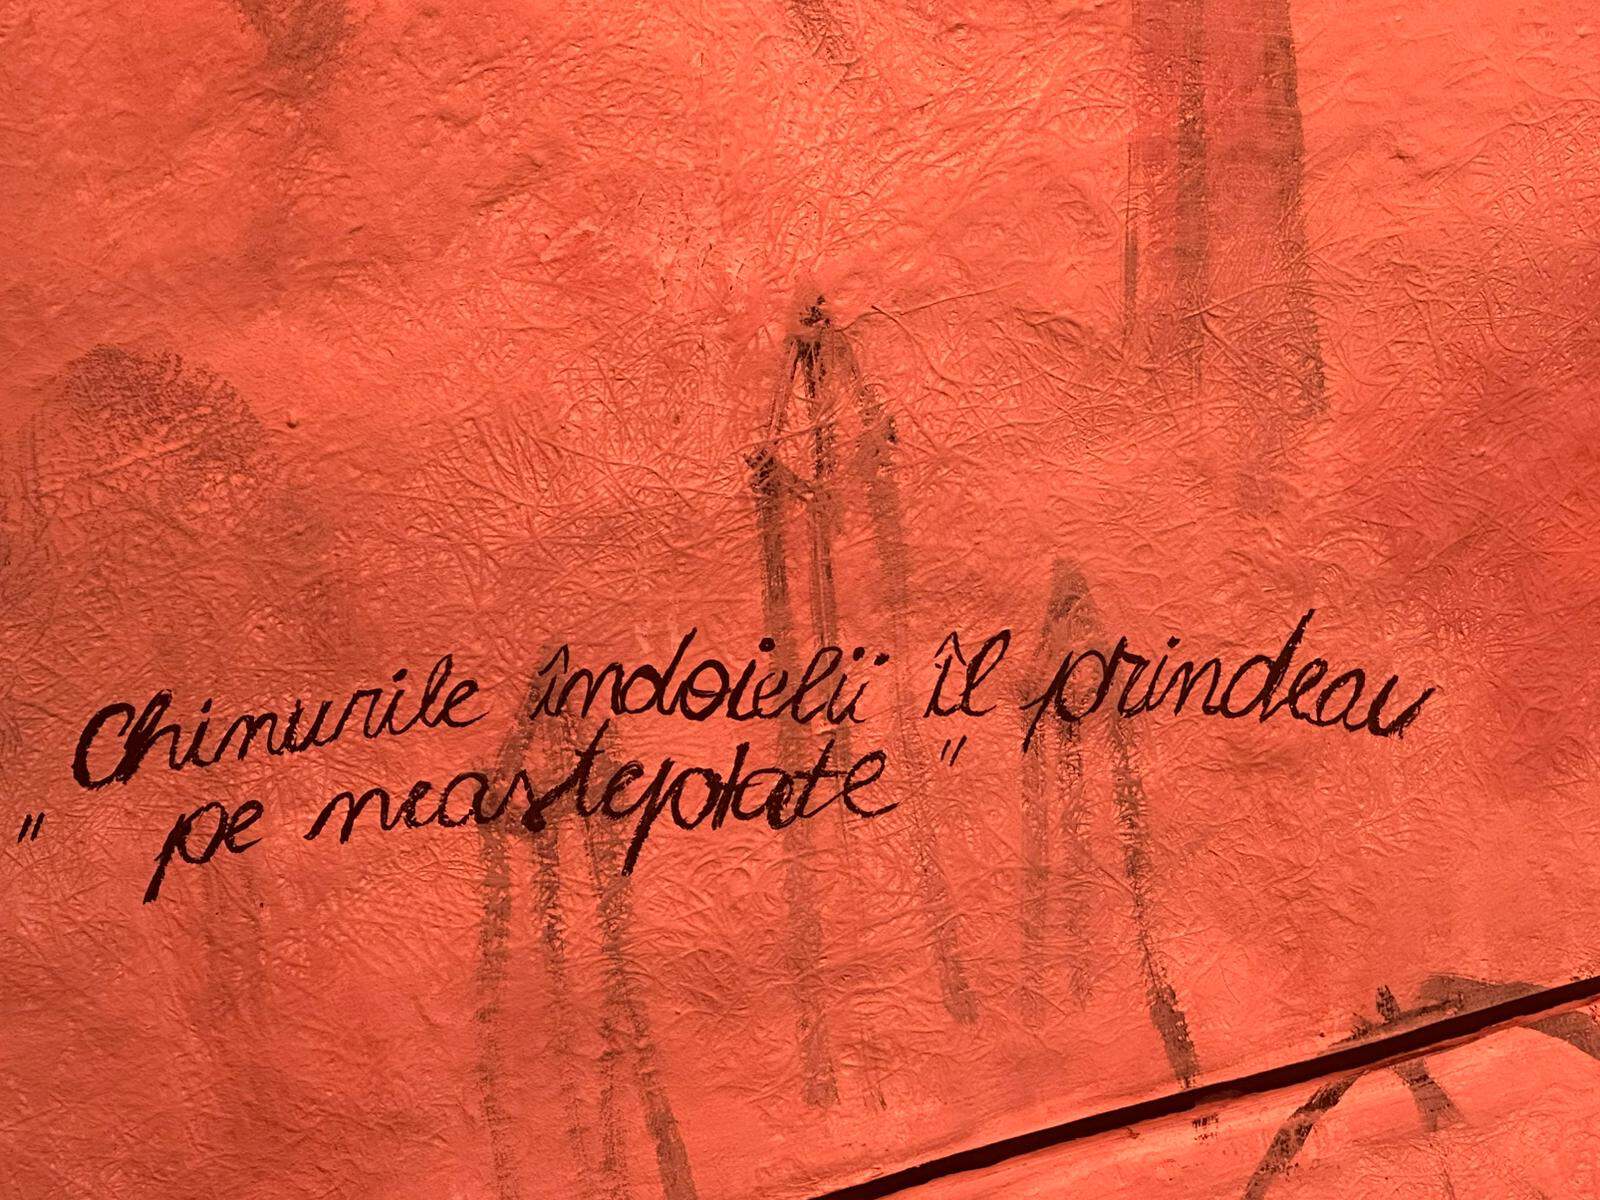 Chinurile îndoielii îl prindeau
" pe neașteptate "